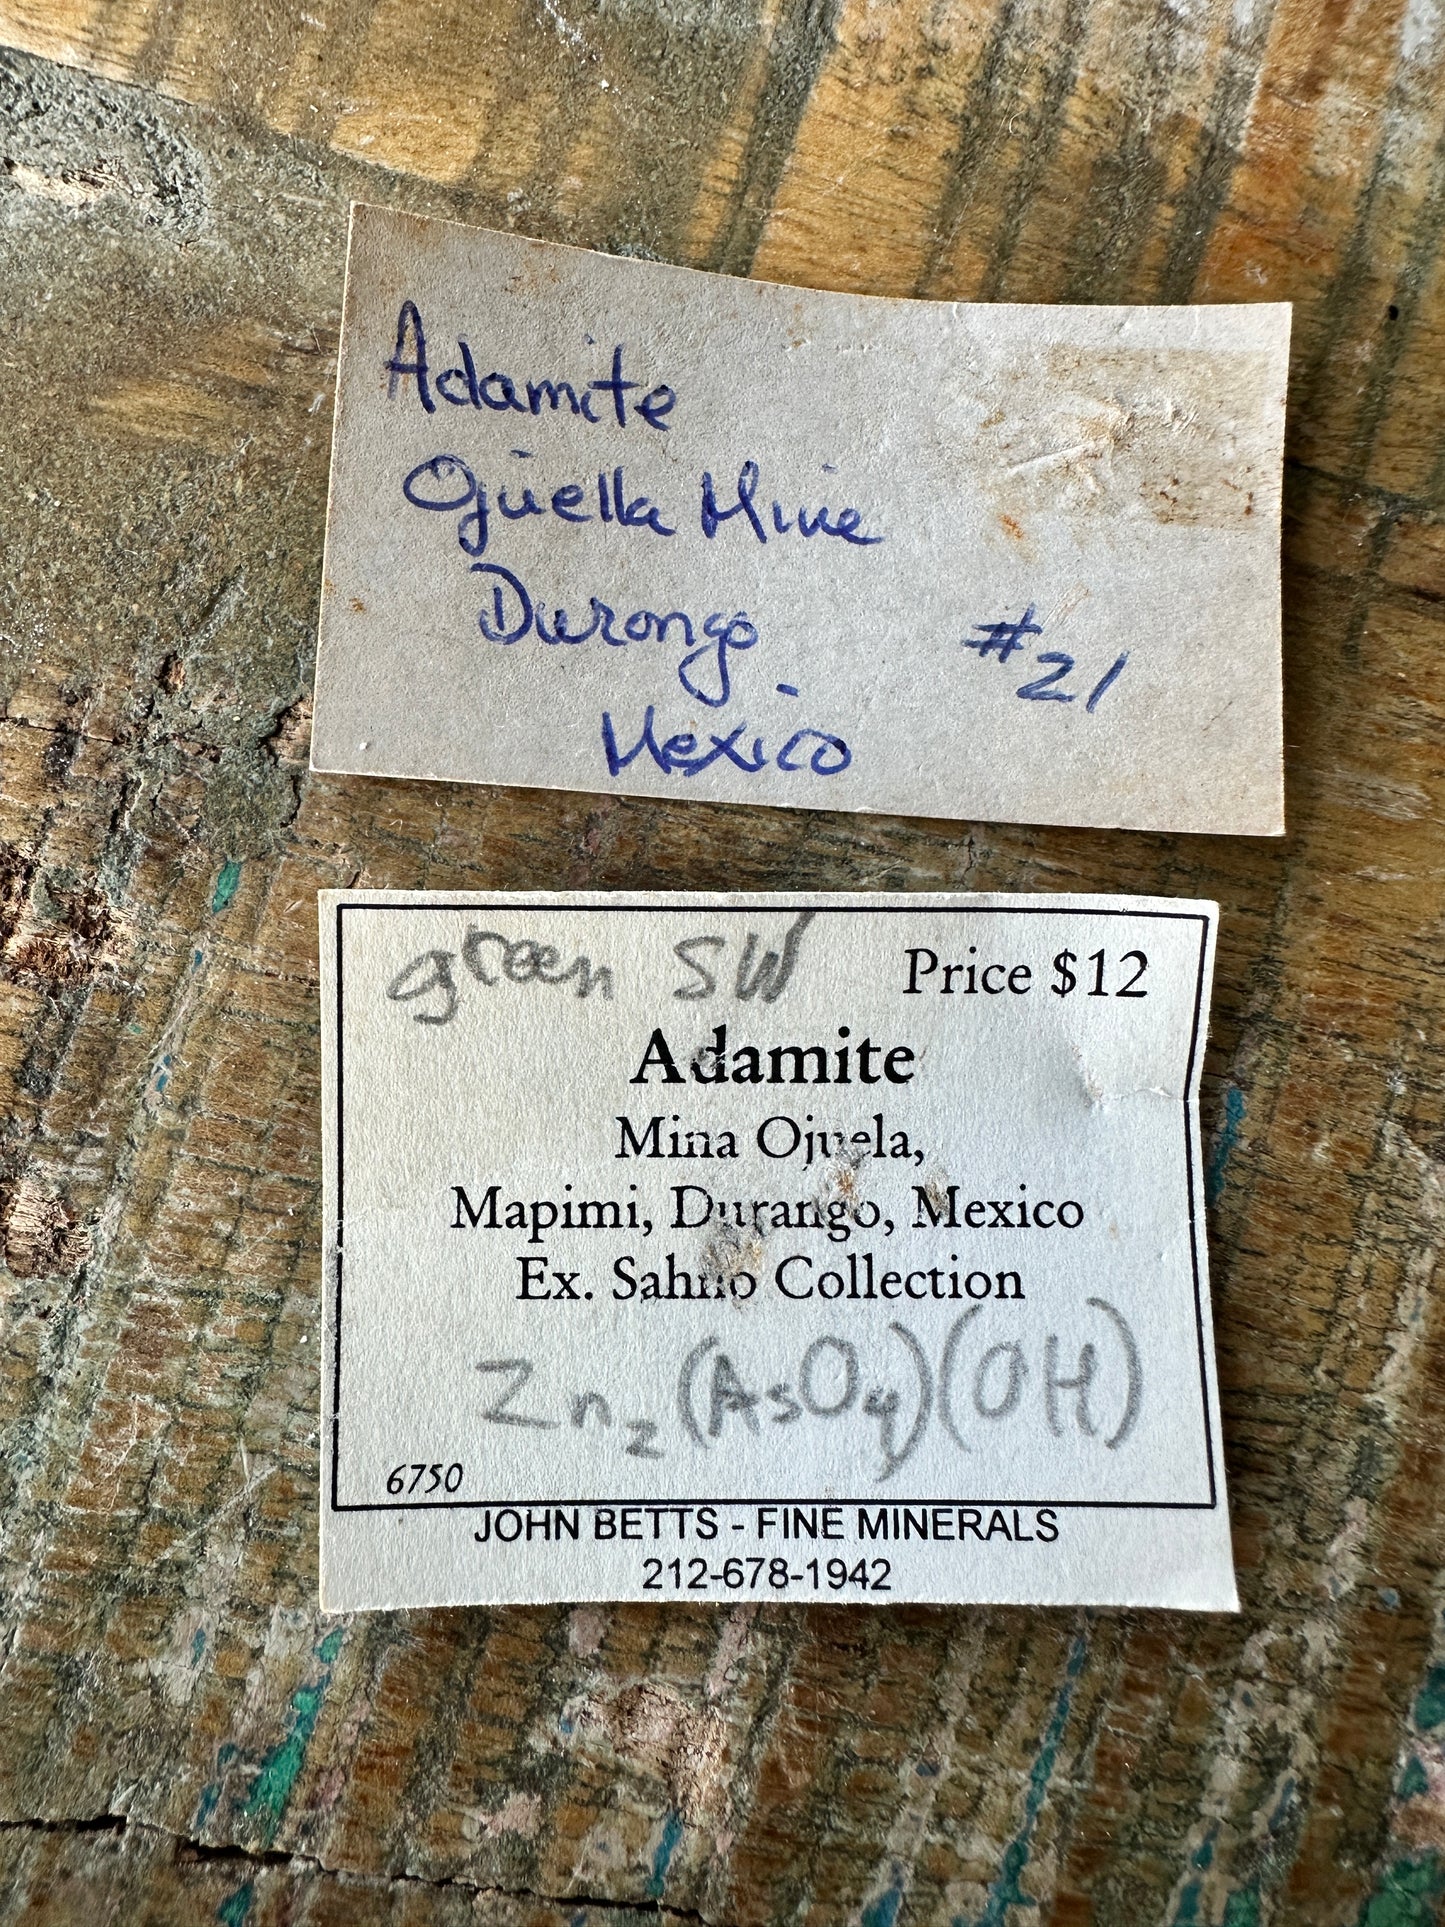 Adamite
Ojuella Mine
Durango
#21
Mexico
green SW
Price $12
Adamite
Mina Ojuela,
Mapimi, Durango, Mexico
Ex. Sahno Collection
Zn₂(AsO₄)(OH)
6750
JOHN BETTS - FINE MINERALS
212-678-1942